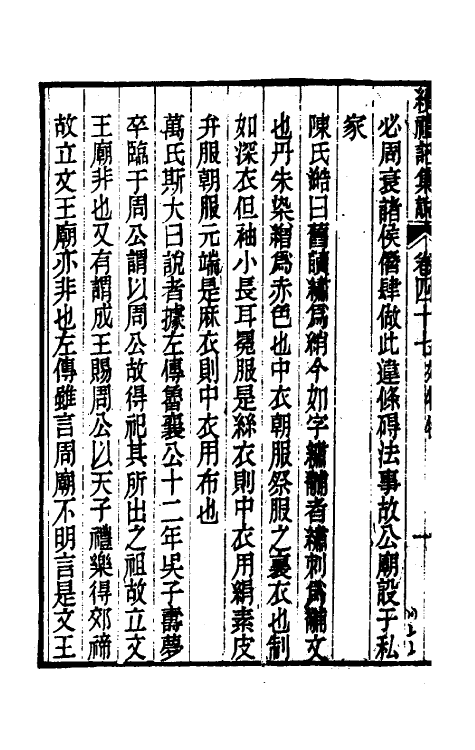 續禮記集說　卷四十七　郊特牲　十
必周衰諸侯僭肆做此違條碍法事故公廟設于私
家
陳氏澔曰舊讀繡爲綃今如字繡黼者繡刺爲黼文
也丹朱染繒爲赤色也中衣朝服祭服之裏衣也制
如深衣但袖小長耳冕服是絲衣則中衣用絹素皮
弁服朝服元端是麻衣則中衣用布也
萬氏斯大曰說者據左傳魯襄公十二年吳子壽夢
卒臨于周公謂以周公故得祀其所出之祖故立文
王廟非也又有謂成王賜周公以天子禮樂得郊禘
故立文王廟亦非也左傳雖言周廟不明言是文王